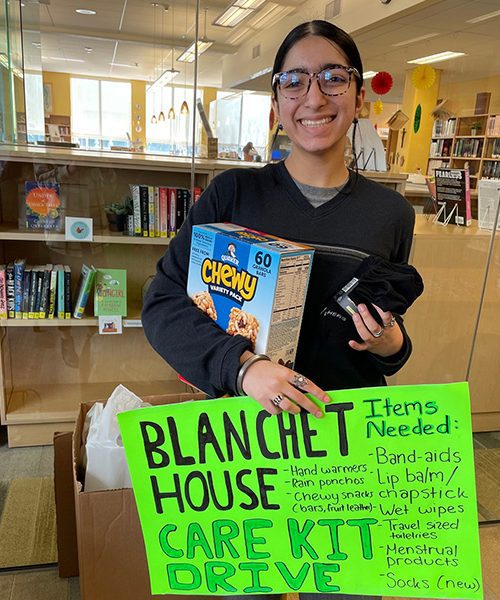 60
GRANOLA
BARS
QUAKER
CHEWY
VARIETY PACK
FEARLESS
BLANCHET
HOUSE
CARE KIT
DRIVE
-Hand warmers
-Rain ponchos
-Chewy snacks
(bars, fruit leather)
Items
Needed:
-Band-aids
-Lip balm/
chapstick
-Wet wipes
-Travel sized
toiletries
-Menstrual
products
-Socks (new)